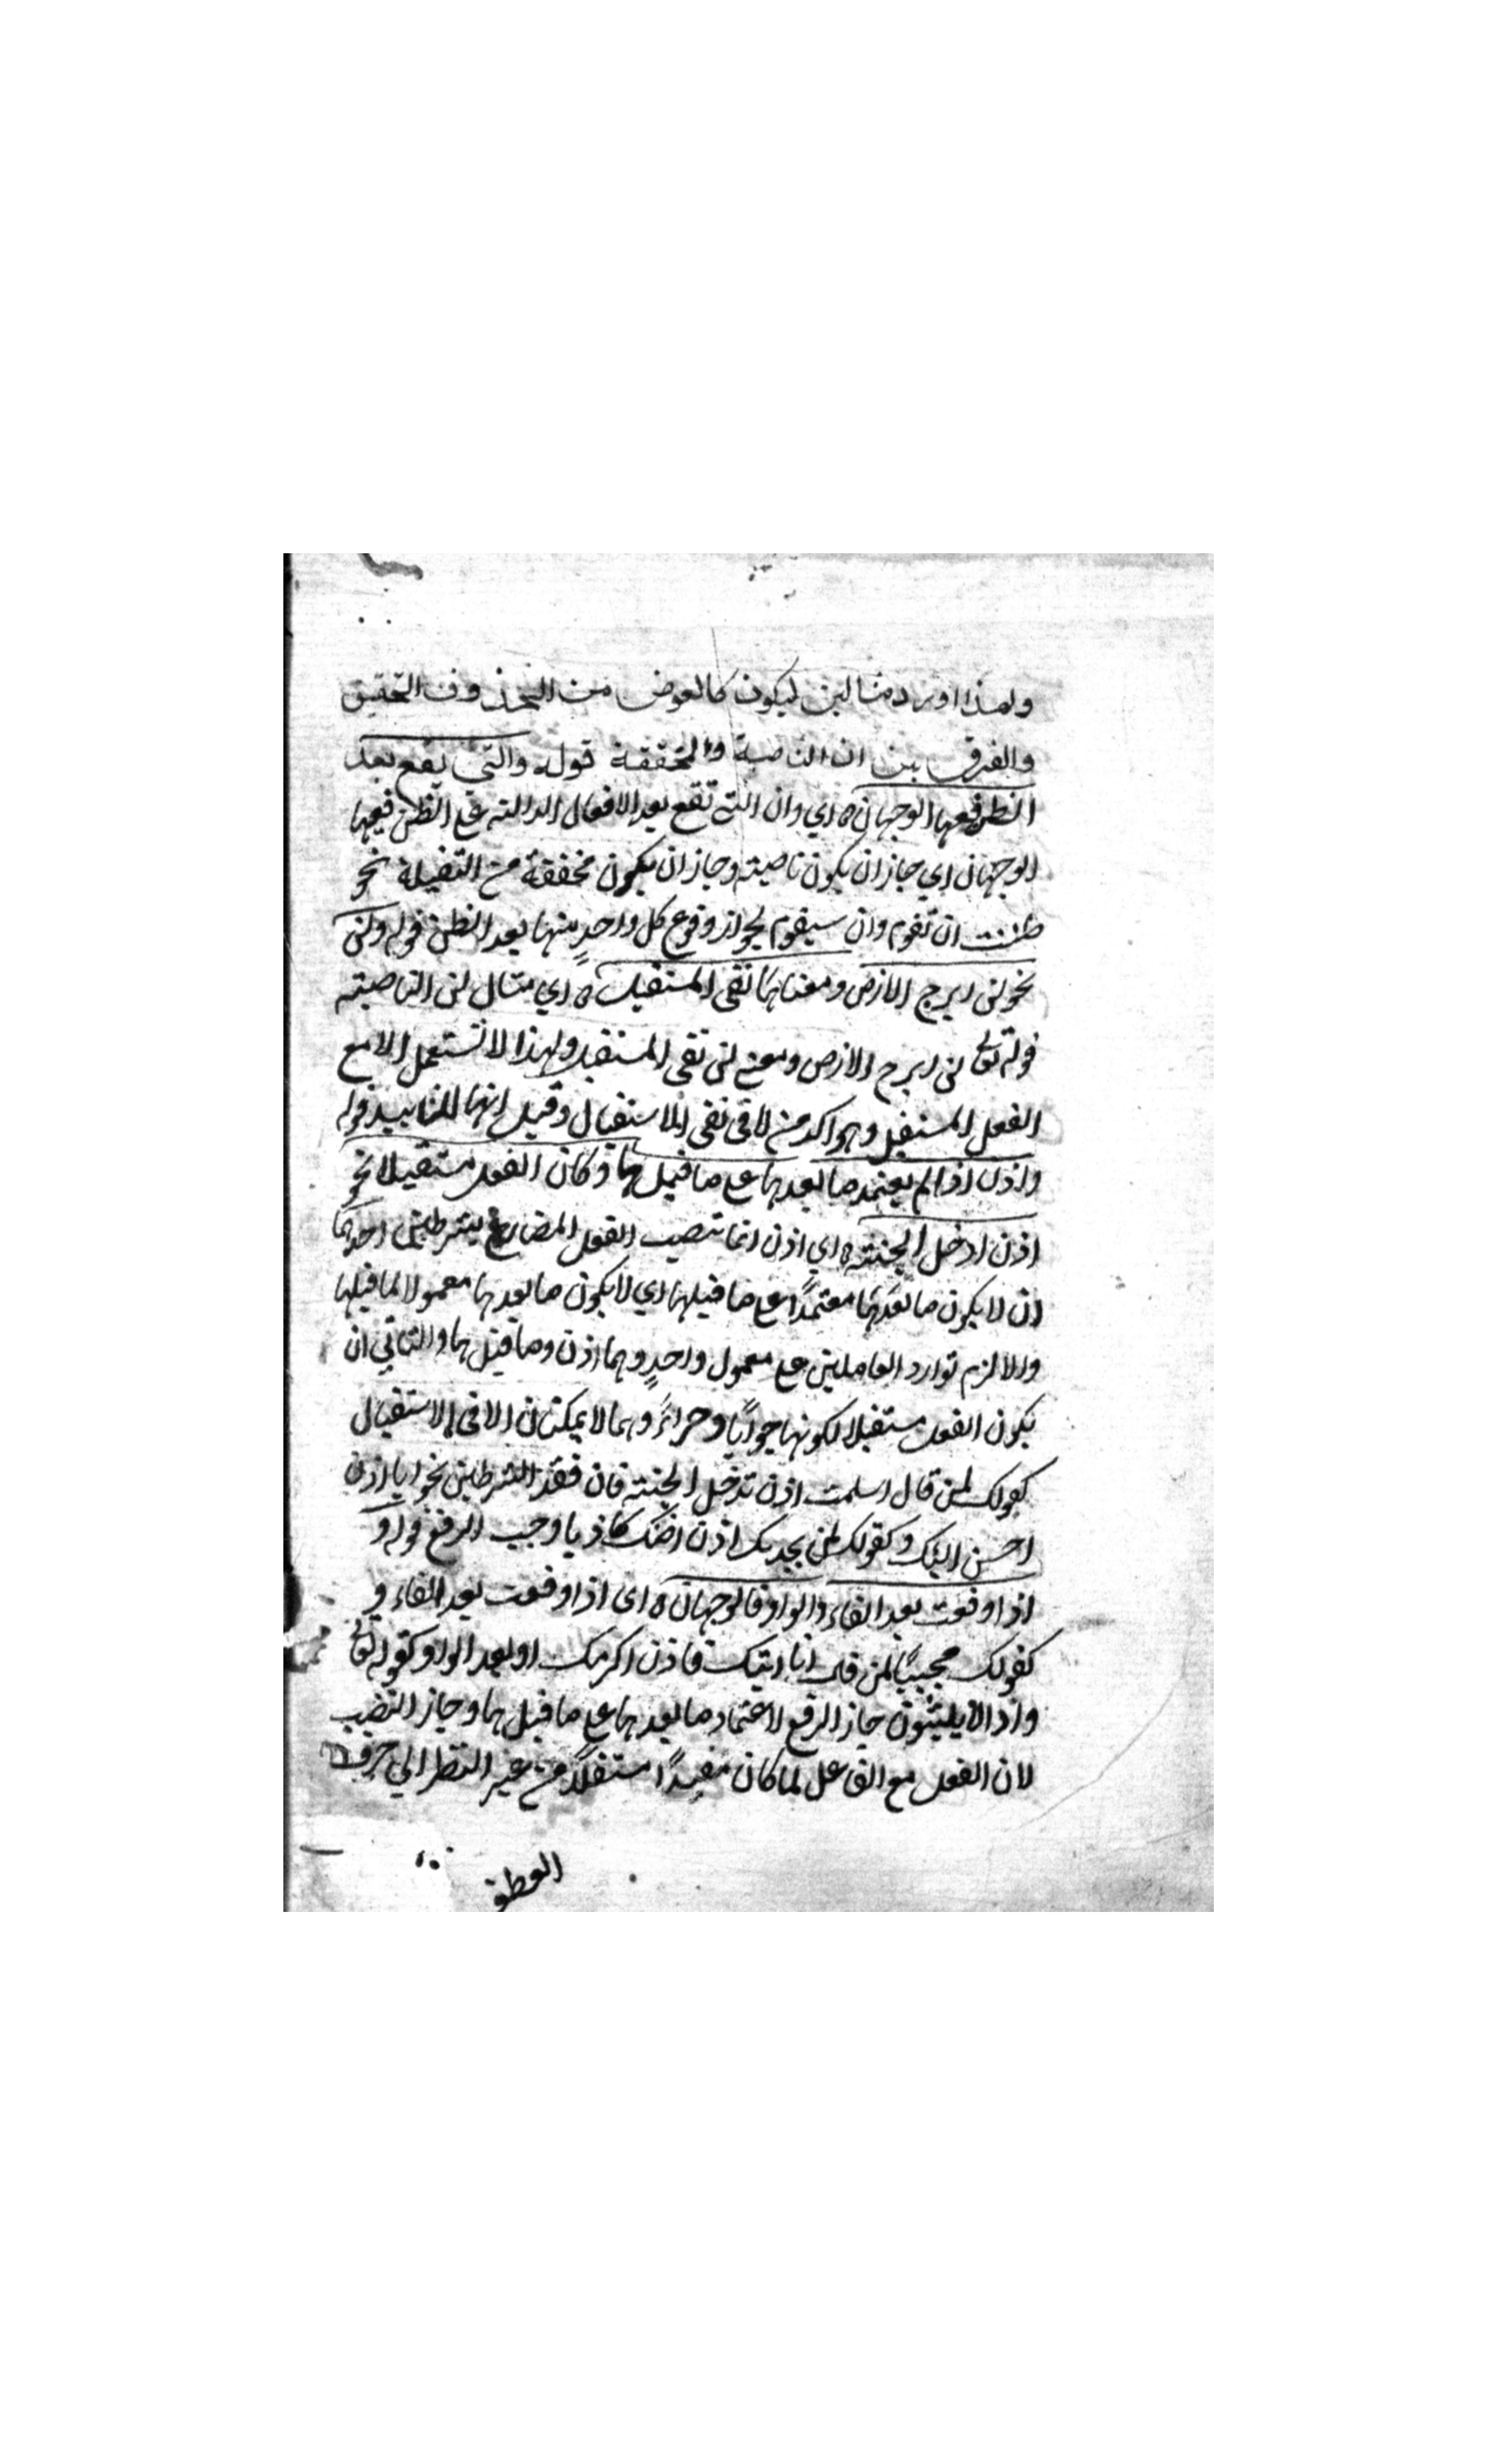 ولهذا اورد مثالين ليكون كالعوض من المحذوف التحقيق
والفرق بين ان الناصبة والمخففة قوله والتي تقع بعد
الظن ففيها الوجهان اي وان التي تقع بعد الافعال الدالة على الظن ففيها
الوجهان اي جاز ان يكون ناصبته وجاز ان يكون مخففة من الثقيلة نحو
ظننت ان تقوم وان سيقوم لجواز وقوع كل واحدٍ منها بعد الظن قوله ولن
نحو لن ابرح الارض ومعناها نفى المستقبل اي مثال لن الناصبته
قوله تعالى لن ابرح الارض ومعنى لن نفى المستقبل ولهذا لا تستعمل الا مع
الفعل المستقبل وهو اكد من لا فى نفى الاستقبال وقيل انها للتابيد قوله
واذن اذا لم يعتمد ما بعدها على ما قبلها وكان الفعل مستقبلا نحو
اذن ادخل الجنته اي اذن انما تنصب الفعل المضارع بشرطين احدهما
ان لا يكون ما بعدها معتمدًا على ما قبلها اي لا يكون ما بعدها معمولا لما قبلها
والا لزم توارد العاملين على معمول واحدٍ وهما اذن وما قبلها والثاني ان
يكون الفعل مستقبلا لكونها جوابًا وجزاءً وهما لا يمكنان الا فى الاستقبال
كقولك لمن قال اسلمت اذن تدخل الجنته فان فقد الشرطين نحو انا اذن
احسن اليك وكقولك لمن يحدثك اذن اظنك كاذبا وجب الرفع قوله و
اذا وقعت بعد الفاء والواو فالوجهان اى اذا وقعت بعد الفاء و
كقولك مجيبًا لمن قال انا اتيك فاذن اكرمك او بعد الواو كقوله تعالى
واذا لا يلبثون جاز الرفع لاعتماد ما بعدها على ما قبلها وجاز النصب
لان الفعل مع الفاعل لما كان مفيدًا مستقلًا من غير النظر الي حرف
العطف